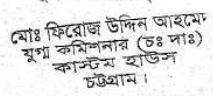 মোঃ ফিরোজ উদ্দিন আহমেদ
যুগ্ম কমিশনার (চঃ দাঃ)
কাস্টম হাউস
চট্টগ্রাম।